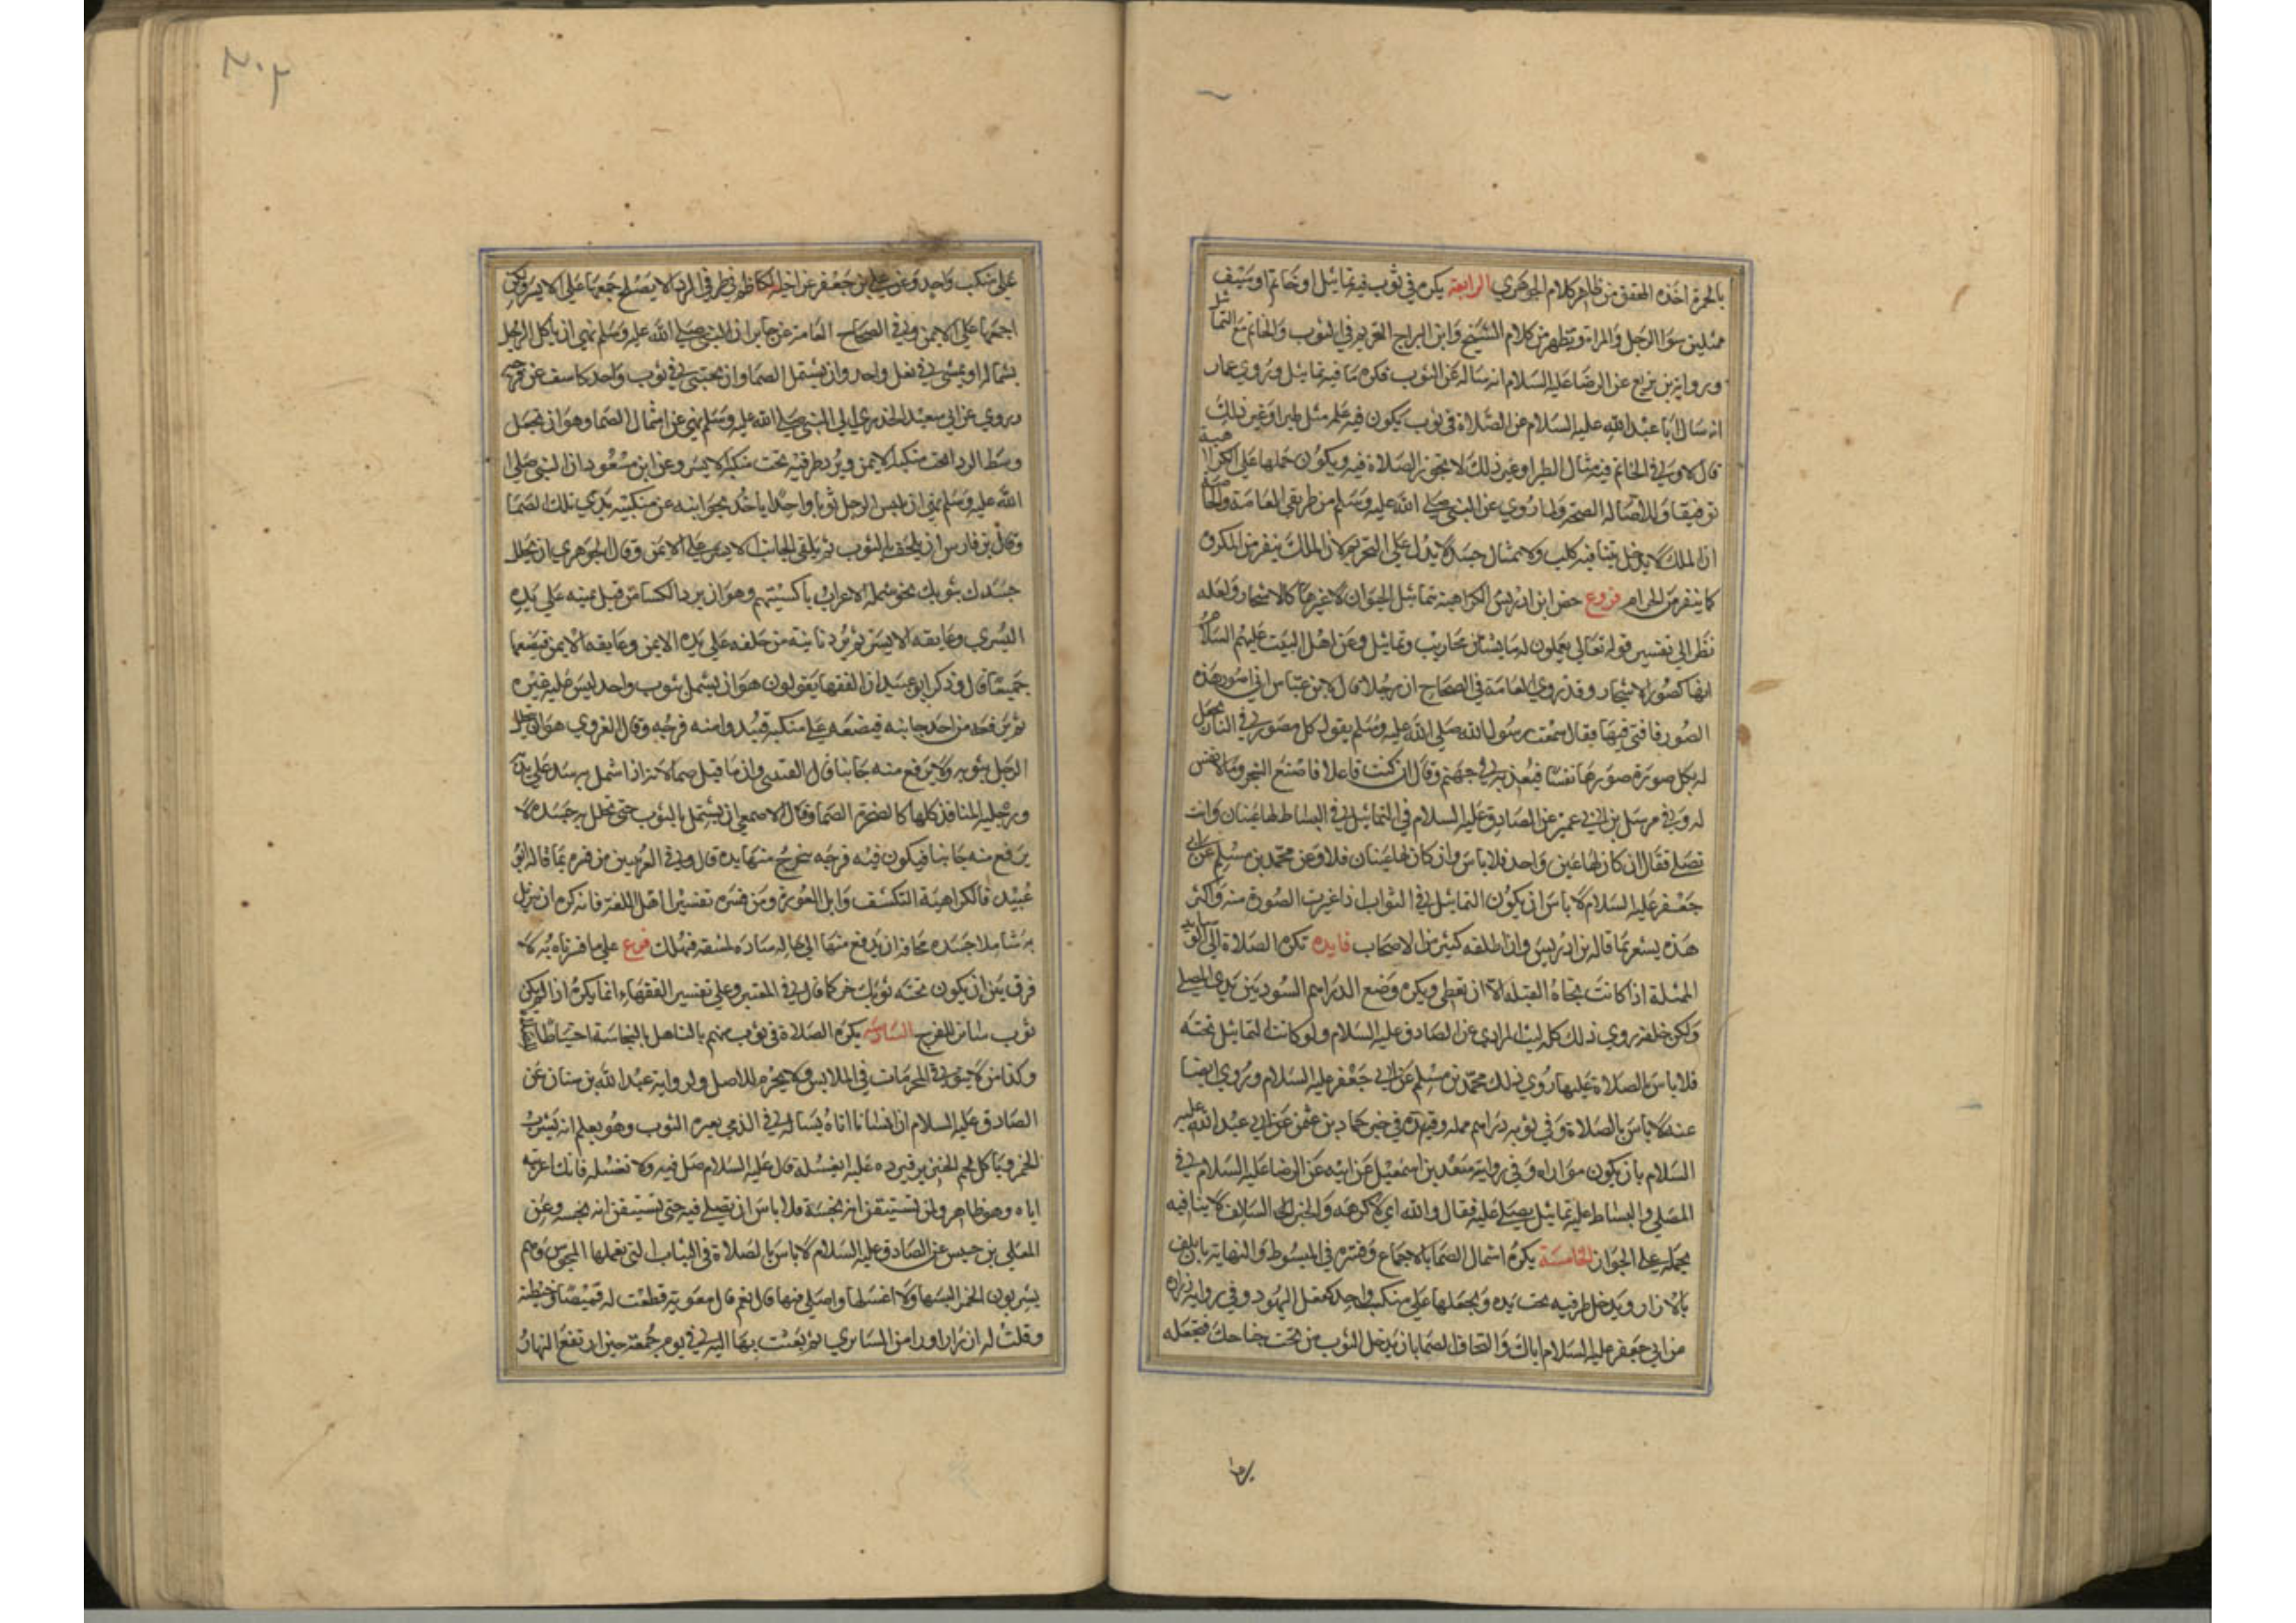 بالحمرة اخذه المحقق من ظاهر كلام الجوهري الرابعة يكره في ثوب فيه تماثيل او خاتم او سيف
ممثلين سوا الرجل والمراة ويظهر من كلام الشيخ وابن البراج التحريم في الثوب والخاتم مع التماثيل
ورواية بن بزيع عن الرضا عليه السلام انه ساله عن الثوب فكره ما فيه تماثيل وروي عمار
انه سال ابا عبد الله عليه السلام عن الصلاة في ثوب يكون فيه علم مثل طير او غير ذلك
قال لا وفي الخاتم فيه مثال الطير او غير ذلك لا تجوز الصلاة فيه ويكون حملها على الكراهية
توفيقا ولاصالة الصحة ولما روي عن النبي صلى الله عليه وسلم من طريق العامة والخاصة
ان الملك لا يدخل بيتا فيه كلب ولا تمثال جسد لا يدل على التحريم لان الملك ينفر من المكروه
كما ينفر من الحرام فروع خص ابن ادريس الكراهية بتماثيل الحيوان لا غيرها كالاشجار ولعله
نظر الي تفسير قوله تعالى يعملون له ما يشاء من محاريب وتماثيل وعن اهل البيت عليهم السلام
انها كصور الاشجار وقد روي العامة في الصحاح ان رجلا قال لابن عباس اني اصور هذه
الصور فافتني فيها فقال سمعت رسول الله صلى الله عليه وسلم يقول كل مصور في النار يجعل
له بكل صورة صورها نفسا فيعذبه في جهنم وقال ان كنت فاعلا فاصنع الشجر وما لا نفس
له وفي مرسل بن ابي عمير عن الصادق عليه السلام في التماثيل في البساط لها عينان وانت
تصلي فقال ان كان لها عين واحد فلا باس وان كان لها عينان فلا وعن محمد بن مسلم عن ابي
جعفر عليه السلام لا باس ان يكون التماثيل في الثواب اذا غيرت الصورة منه واكثر
هذه يشعر بما قاله بن ادريس وان اطلقه كثير من الاصحاب فايده تكره الصلاة الى الوسايد
الممثلة اذا كانت تجاه القبلة الا ان تغطي ويكره وضع الدراهم السود بين يدي المصلي
ولكن خلفه روي ذلك كله ليث المرادي عن الصادق عليه السلام ولو كانت التماثيل تحته
فلا باس بالصلاة عليها روي ذلك محمد بن مسلم عن ابي جعفر عليه السلام وروي ايضا
عنه لا باس بالصلاة وفي ثوبه دراهم ممثله وقيده في خبر حماد بن عثمن عن ابي عبد الله عليه
السلام بان يكون مواراه وفي رواية سعد بن اسمعيل عن ابيه عن الرضا عليه السلام في
المصلي والبساط عليه تماثيل يصلي عليه فقال والله اي لاكرهه والخبر السالف لا ينافيه
يحمله على الجواز الخامسة يكره اشتمال الصما بالاجماع وفسره في المبسوط والنهاية بان يلتف
بالازار ويدخل طرفيه تحت يده ويجعلها على منكب واحد كفعل اليهود وفي رواية زرارة
عن ابي جعفر عليه السلام اياك والتحاف الصما بان يدخل الثوب من تحت جناحك فتجعله
برما
٢٠٢
على منكب واحد وعن علي بن جعفر عن اخيه الكاظم في طرفي الردا لا يصلح جمعهما على الايسر ولكن
اجمعهما على الايمن وفي الصحاح العامة عن جابر ان النبي صلى الله عليه وسلم نهي ان ياكل الرجل
بشماله او يمشي في نعل واحد وان يشتمل الصما وان يحتبي في ثوب واحد كاشف عن فرجه
وروي عن ابي سعيد الخدري ان النبي صلى الله عليه وسلم نهي عن اشتمال الصما وهو ان يجعل
وسط الردا تحت منكبه الايمن ويرد طرفيه تحت منكبه الايسر وعن ابن مسعود ان النبي صلى
الله عليه وسلم نهي ان يلبس الرجل ثوبا واحدا ياخذ بجوانبه عن منكبيه يدعي تلك الصما
وقال بن فارس ان يلتحف بالثوب ثم يلقي الجانب الايسر على الايمن وقال الجوهري ان تجلل
جسدك بثوبك نحو شملة الاعراب باكسيتهم وهو ان يرد الكسا من قبل يمينه على يده
اليسري وعاتقه الايسر ثم يرد ثانية من خلفه على يده الايمن وعاتقه الايمن فيضمهما
جميعا قال وذكر ابو عبيد ان الفقها يقولون هو ان يشتمل بثوب واحد ليس عليه غيره
ثم يرفعه من احد جانبيه فيضعه على منكبيه فيبدوا منه فرجه وقال الهروي هو ان يتجلل
الرجل بثوبه ولا يرفع منه جانبا قال القتيبي وانما قيل صما لانه اذا اشتمل به سد على يديه
ورجليه المنافذ كلها كالصخرة الصما وقال الاصمعي ان يشتمل بالثوب حتى يجلل به جسده لا
يرفع منه جانبا فيكون فيه فرجه يخرج منها يده قال وفي الغريبين من فسره بما قاله ابو
عبيد فالكراهية التكشف وابدا العورة ومن فسره تفسير اهل اللغة فانه كره ان يتزمل
به شاملا جسده مخافة ان يدفع منها الى حالة سادة لنفسه فيهلك فرع على ما فسرناه به لا
فرق بين ان يكون تحته ثوب اخر كما قال في المعتبر وعلى تفسير الفقهاء انما يكره اذا لم يكن
ثوب ساتر للفرج السادسة يكره الصلاة في ثوب متهم بالتساهل بالنجاسة احتياطا
وكذا من لا يتوقي المحرمات في الملابس ولا يحرم للاصل ولرواية عبد الله بن سنان عن
الصادق عليه السلام ان انسانا اتاه يساله في الذمي يعيره الثوب وهو يعلم انه يشرب
الخمر وياكل لحم الخنزير فيرده عليه ايغسله قال عليه السلام صل فيه ولا تغسله فانك اعرته
اياه وهو طاهر ولن تستيقن انه نجسه فلا باس ان تصلي فيه حتى تستيقن انه نجسه وعن
المعلي بن خنيس عن الصادق عليه السلام لا باس بالصلاة في الثياب التي تعملها المجوس وهم
يشربون الخمر البسها ولا اغسلها واصلي فيها قال نعم قال معويه فقطعت له قميصا وخيطته
وقلت له ازرارا وردا من السابري ثم بعثت بها اليه في يوم جمعة حين ارتفع النهار